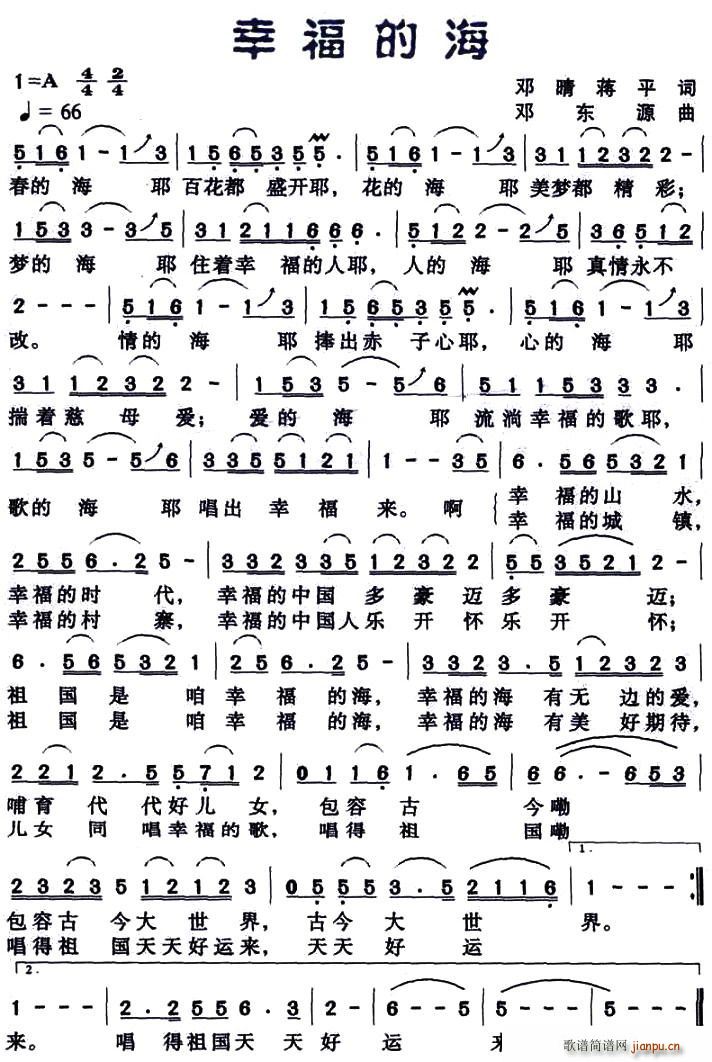 幸福的海
1=A 4/4 2/4
邓晴蒋平词
♩=66
邓东源曲
5 1 6 1 - 1 3 | 1 5 6 5 3 5 5 . | 5 1 6 1 - 1 3 | 3 1 1 2 3 2 2 - |
春的海耶百花都盛开耶，花的海耶美梦都精彩；
1 5 3 3 - 3 5 | 3 1 2 1 1 6 6 6 . | 5 1 2 2 - 2 5 | 3 6 5 1 2 |
梦的海耶住着幸福的人耶，人的海耶真情永不
2 - - - | 5 1 6 1 - 1 3 | 1 5 6 5 3 5 5 . | 5 1 6 1 - 1 3 |
改。情的海耶捧出赤子心耶，心的海耶
3 1 1 2 3 2 2 - | 1 5 3 5 - 5 6 | 5 5 1 1 5 3 3 3 . |
揣着慈母爱；爱的海耶流淌幸福的歌耶，
1 5 3 5 - 5 6 | 5 5 3 5 1 2 1 | 1 - - 3 5 | 6 . 5 6 5 3 2 1 |
歌的海耶唱出幸福来。啊
幸福的山水，
幸福的城镇，
2 5 5 6 . 2 5 - | 3 3 2 3 3 5 1 2 3 2 2 | 5 5 3 5 2 1 2 - |
幸福的时代，幸福的中国多豪迈多豪迈；
幸福的村寨，幸福的中国人乐开怀乐开怀；
6 . 5 6 5 3 2 1 | 2 5 6 . 2 6 5 - | 3 3 2 3 . 5 1 2 3 2 3 |
祖国是咱幸福的海，幸福的海有无边的爱，
祖国是咱幸福的海，幸福的海有美好期待，
2 2 1 2 . 5 5 5 7 1 2 | 0 1 1 6 1 . 6 5 | 6 6 . - 6 5 3 |
哺育代代好儿女，包容古今嘞
儿女同唱幸福的歌，唱得祖国嘞
1.
2 3 2 3 5 1 2 1 2 3 | 0 5 5 5 3 . 5 2 1 1 6 | 1 - - - :‖
包容古今大世界，古今大世界。
唱得祖国天天好运来，天天好运
2.
1 - - - | 2 . 2 5 5 6 . 3 | 2 - 1 2 - | 6 - - 5 | 5 - - - | 5 - - - ‖
来。唱得祖国天天好运来
歌谱简谱网
jianpu.cn